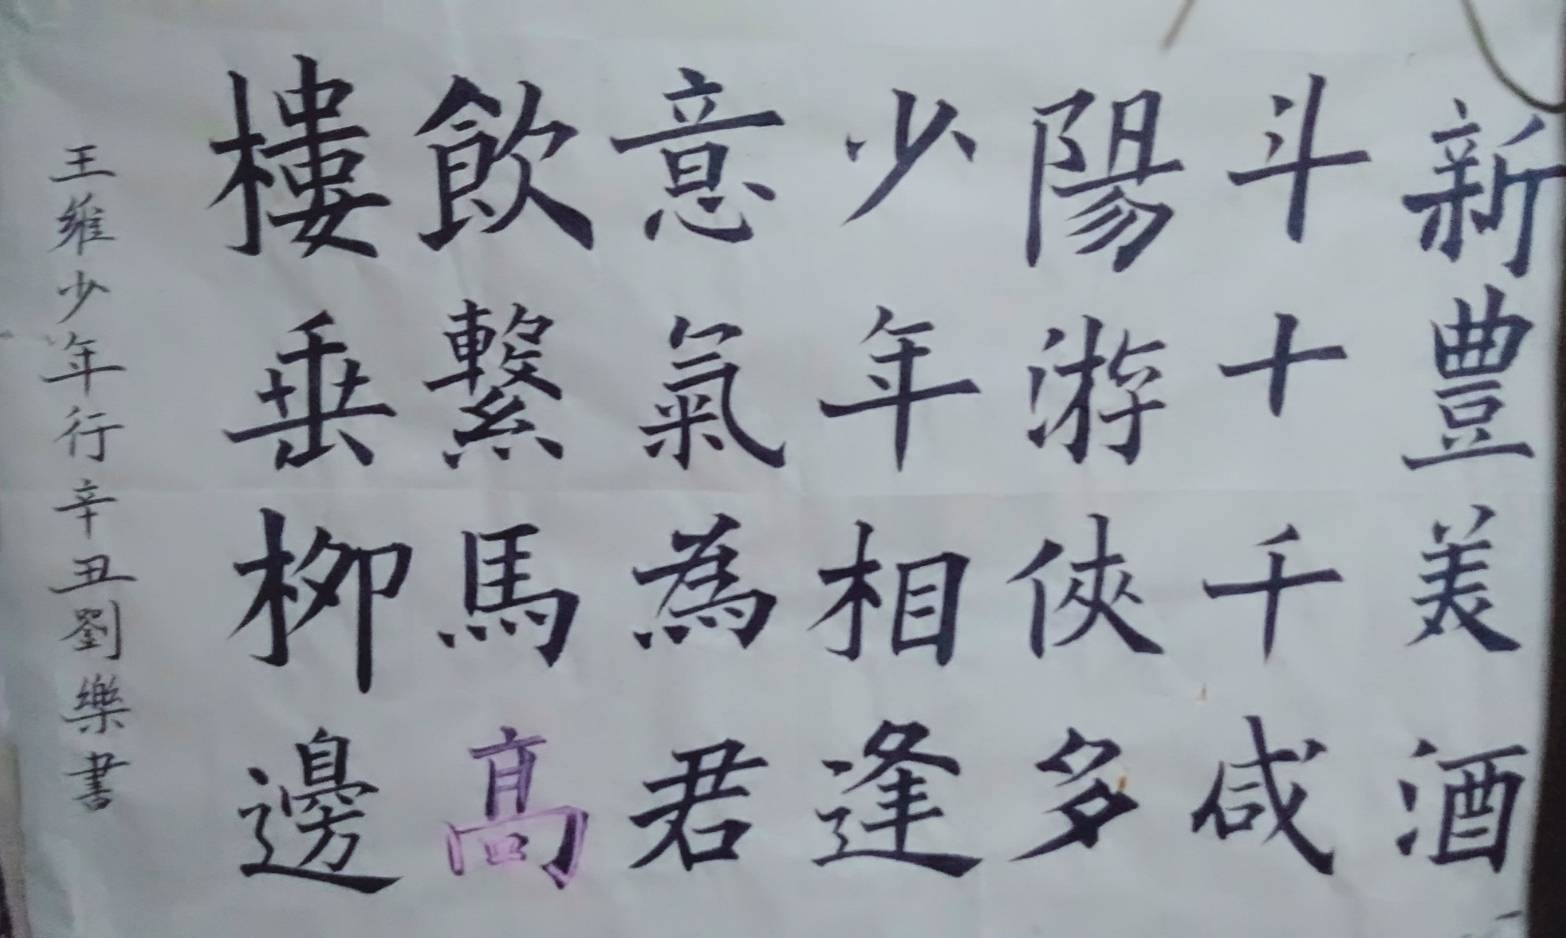 新豊美酒
斗十千咸
陽游俠多
少年相逢
意氣為君
飲繫馬高
樓垂柳邊
王維少年行辛丑劉樂書